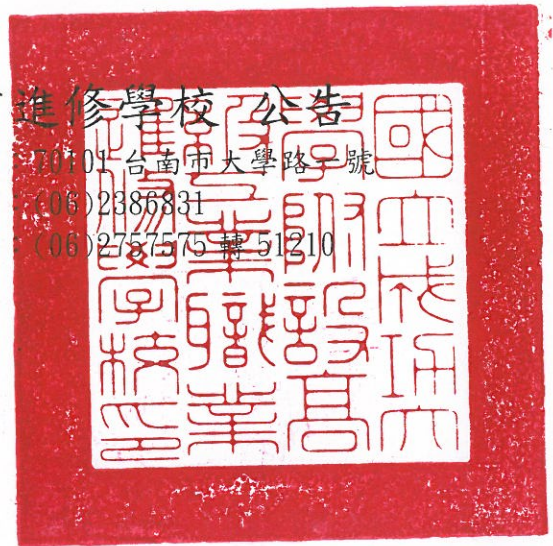 進修學校 公告
：70101 台南市大學路一號
：(06)2386831
：(06)2757575 轉 51210
國立成功大
學附設高
級工業職業
進修學校印